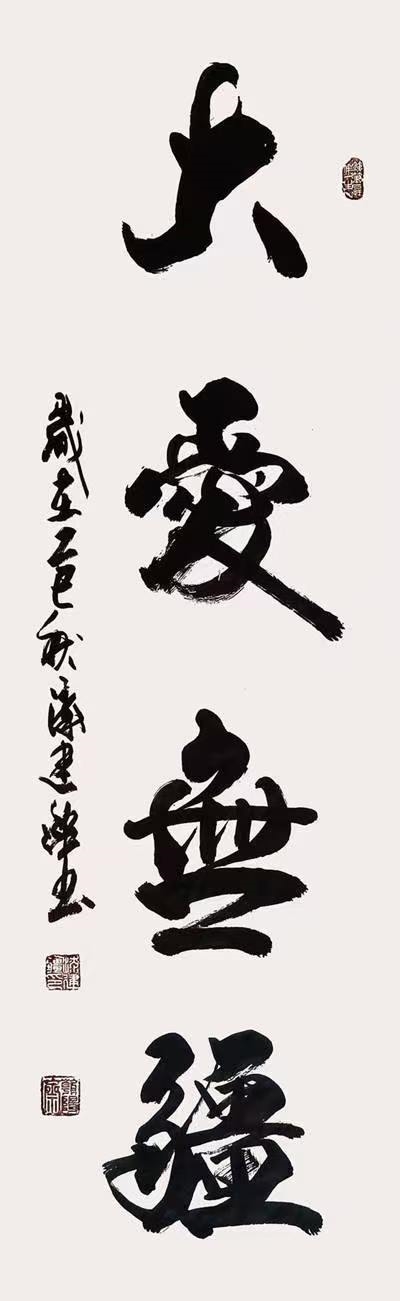 大愛無疆
歲在乙巳秋建華書